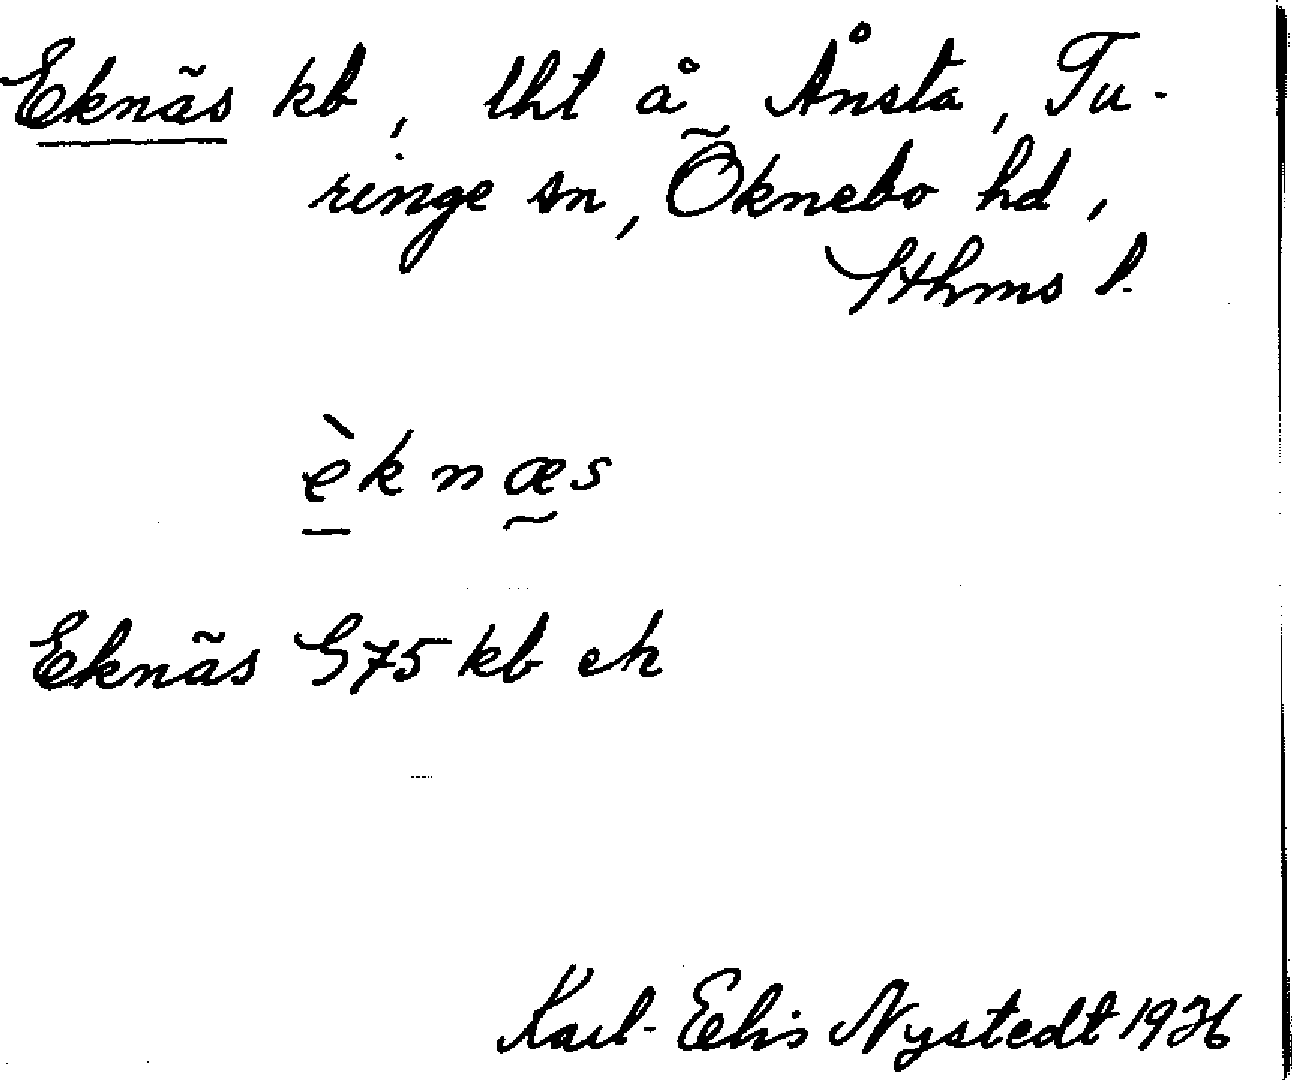 Eknäs kb, tht å Ånsta, Tu-
ringe sn, Öknebo hd,
Sthms l.
èknæs
Eknäs G75 kb ek
Karl-Elis Nystedt 1936